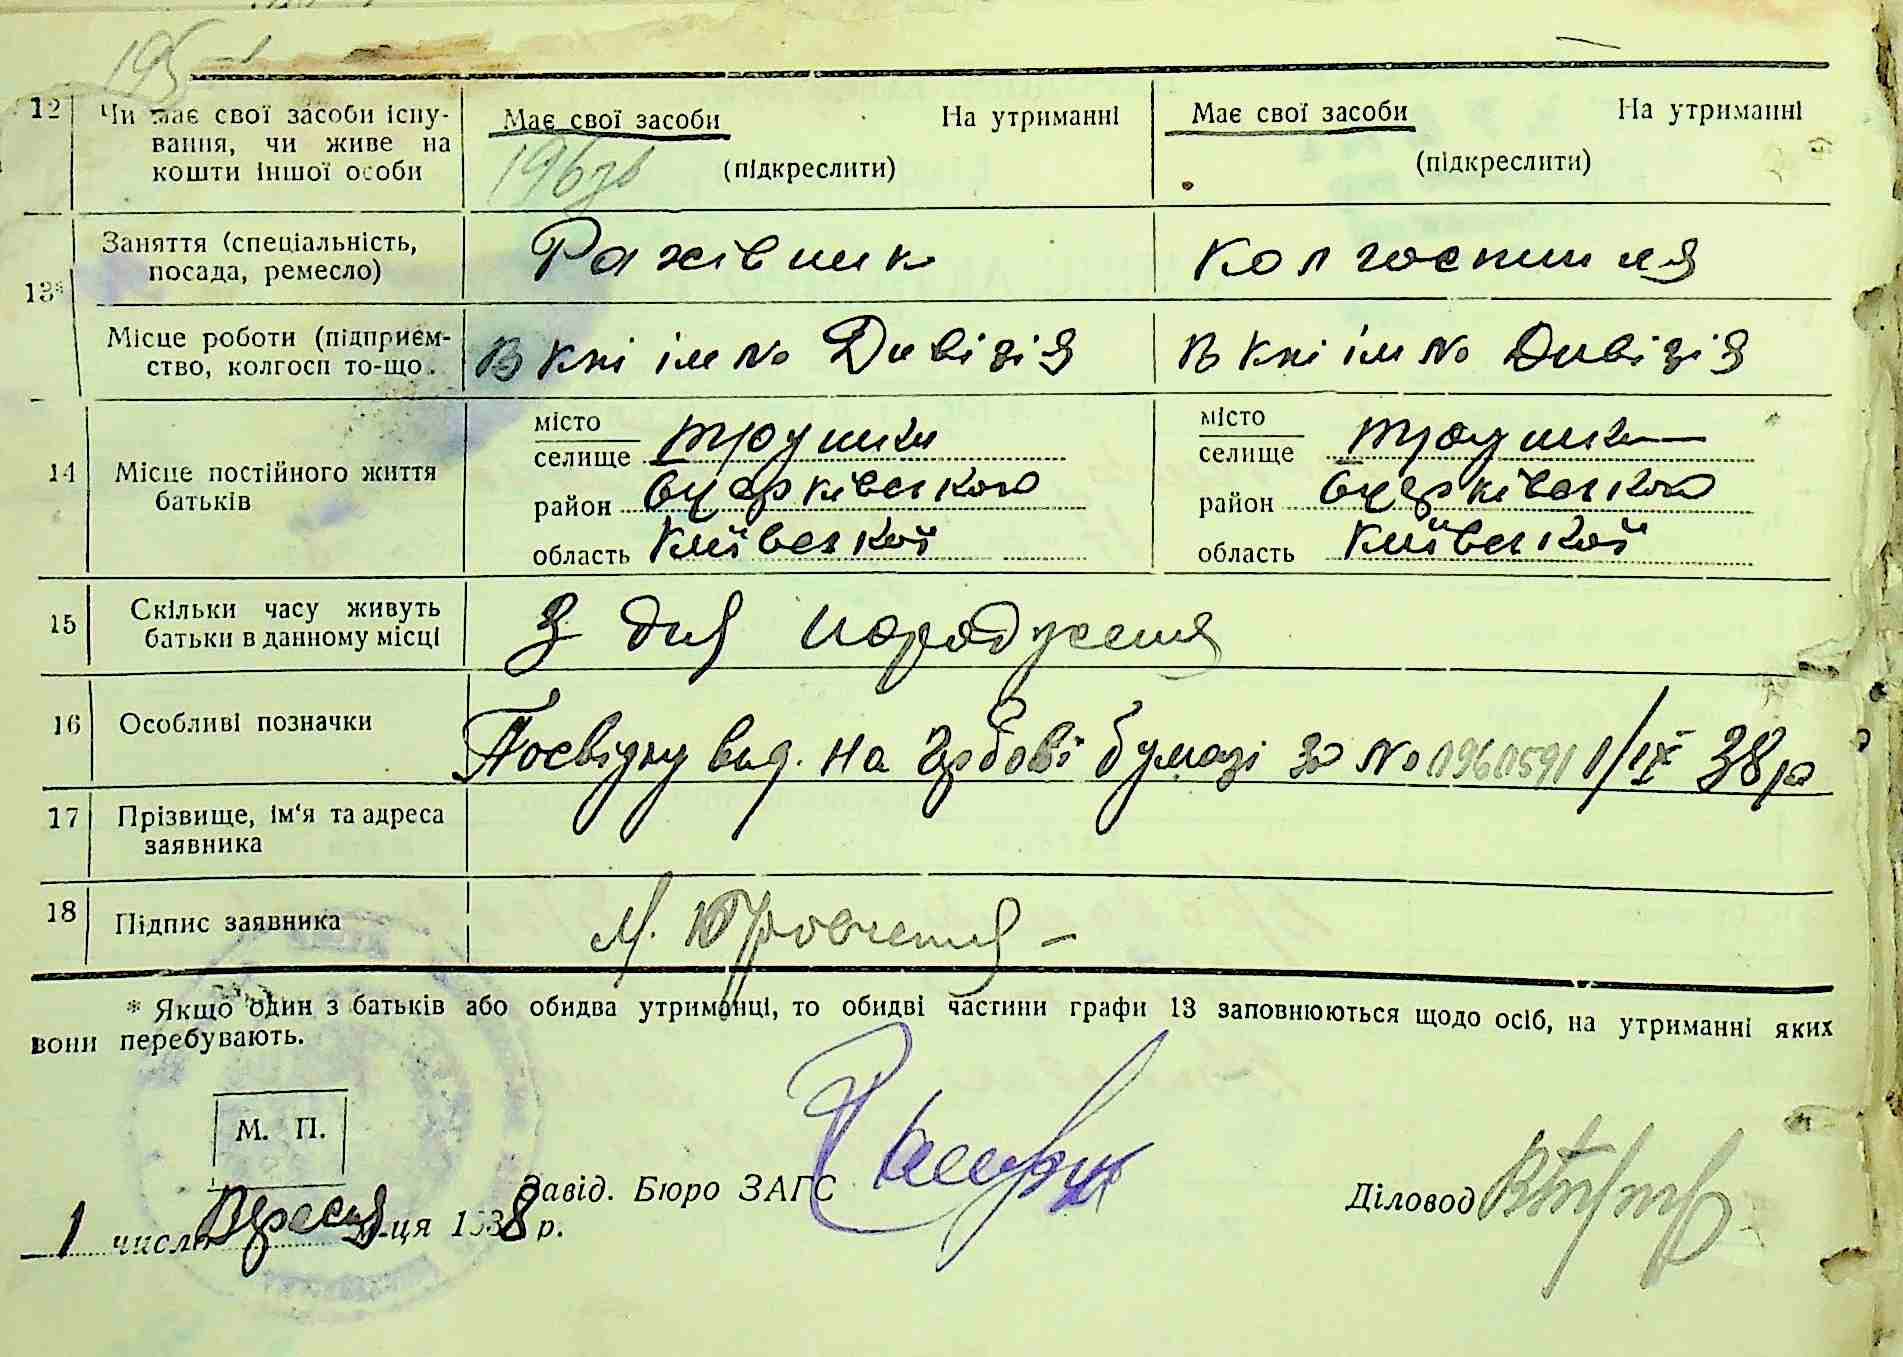 195
12 Чи має свої засоби існу-
вання, чи живе на
кошти іншої особи
Має свої засоби На утриманні
(підкреслити)
Має свої засоби На утриманні
(підкреслити)
13* Заняття (спеціальність,
посада, ремесло)
Рахівник
колгоспниця
Місце роботи (підприєм-
ство, колгосп то-що.
В к-ні ім Дивізія
В к-ні ім Дивізія
14 Місце постійного життя
батьків
місто
селище Трушки
район Бцерківського
область Київської
місто
селище Трушки
район Бцерківського
область Київської
15 Скільки часу живуть
батьки в данному місці
З дня народження
16 Особливі позначки
Посвідку вид. на гербові бумазі за № 0960591 1/IX 38 р
17 Прізвище, ім'я та адреса
заявника
18 Підпис заявника
* Якщо один з батьків або обидва утриманці, то обидві частини графи 13 заповнюються щодо осіб, на утриманні яких
вони перебувають.
М. П.
Завід. Бюро ЗАГС
Діловод
1 числа Вересня м-ця 1938 р.